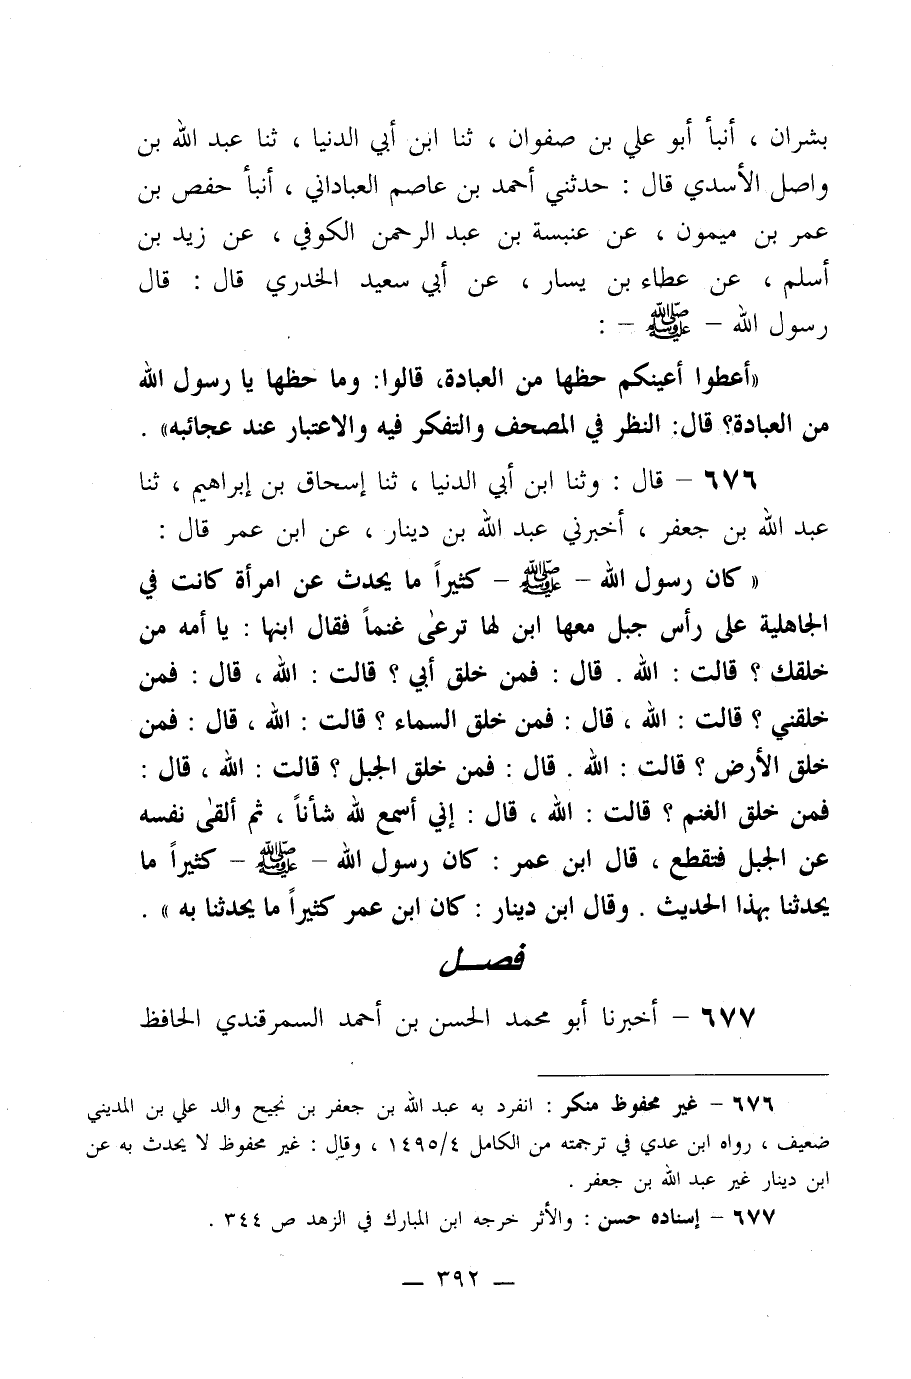 بشران ، أنبأ أبو علي بن صفوان ، ثنا ابن أبي الدنيا ، ثنا عبد الله بن
واصل الأسدي قال : حدثني أحمد بن عاصم العباداني ، أنبأ حفص بن
عمر بن ميمون ، عن عنبسة بن عبد الرحمن الكوفي ، عن زيد بن
أسلم ، عن عطاء بن يسار ، عن أبي سعيد الخدري قال : قال
رسول الله – ﷺ – :
«أعطوا أعينكم حظها من العبادة، قالوا: وما حظها يا رسول الله
من العبادة؟ قال: النظر في المصحف والتفكر فيه والاعتبار عند عجائبه» .
٦٧٦ – قال : وثنا ابن أبي الدنيا ، ثنا إسحاق بن إبراهيم ، ثنا
عبد الله بن جعفر ، أخبرني عبد الله بن دينار ، عن ابن عمر قال :
« كان رسول الله – ﷺ – كثيراً ما يحدث عن امرأة كانت في
الجاهلية على رأس جبل معها ابن لها ترعى غنماً فقال ابنها : يا أمه من
خلقك ؟ قالت : الله . قال : فمن خلق أبي ؟ قالت : الله ، قال : فمن
خلقني ؟ قالت : الله ، قال : فمن خلق السماء ؟ قالت : الله ، قال : فمن
خلق الأرض ؟ قالت : الله . قال : فمن خلق الجبل ؟ قالت : الله ، قال :
فمن خلق الغنم ؟ قالت : الله ، قال : إني أسمع لله شأناً ، ثم ألقى نفسه
عن الجبل فتقطع ، قال ابن عمر : كان رسول الله – ﷺ – كثيراً ما
يحدثنا بهذا الحديث . وقال ابن دينار : كان ابن عمر كثيراً ما يحدثنا به » .
فصل
٦٧٧ – أخبرنا أبو محمد الحسن بن أحمد السمرقندي الحافظ
٦٧٦ – غير محفوظ منكر : انفرد به عبد الله بن جعفر بن نجيح والد علي بن المديني
ضعيف ، رواه ابن عدي في ترجمته من الكامل ١٤٩٥/٤ ، وقال : غير محفوظ لا يحدث به عن
ابن دينار غير عبد الله بن جعفر .
٦٧٧ – إسناده حسن : والأثر خرجه ابن المبارك في الزهد ص ٣٤٤ .
— ٣٩٢ —